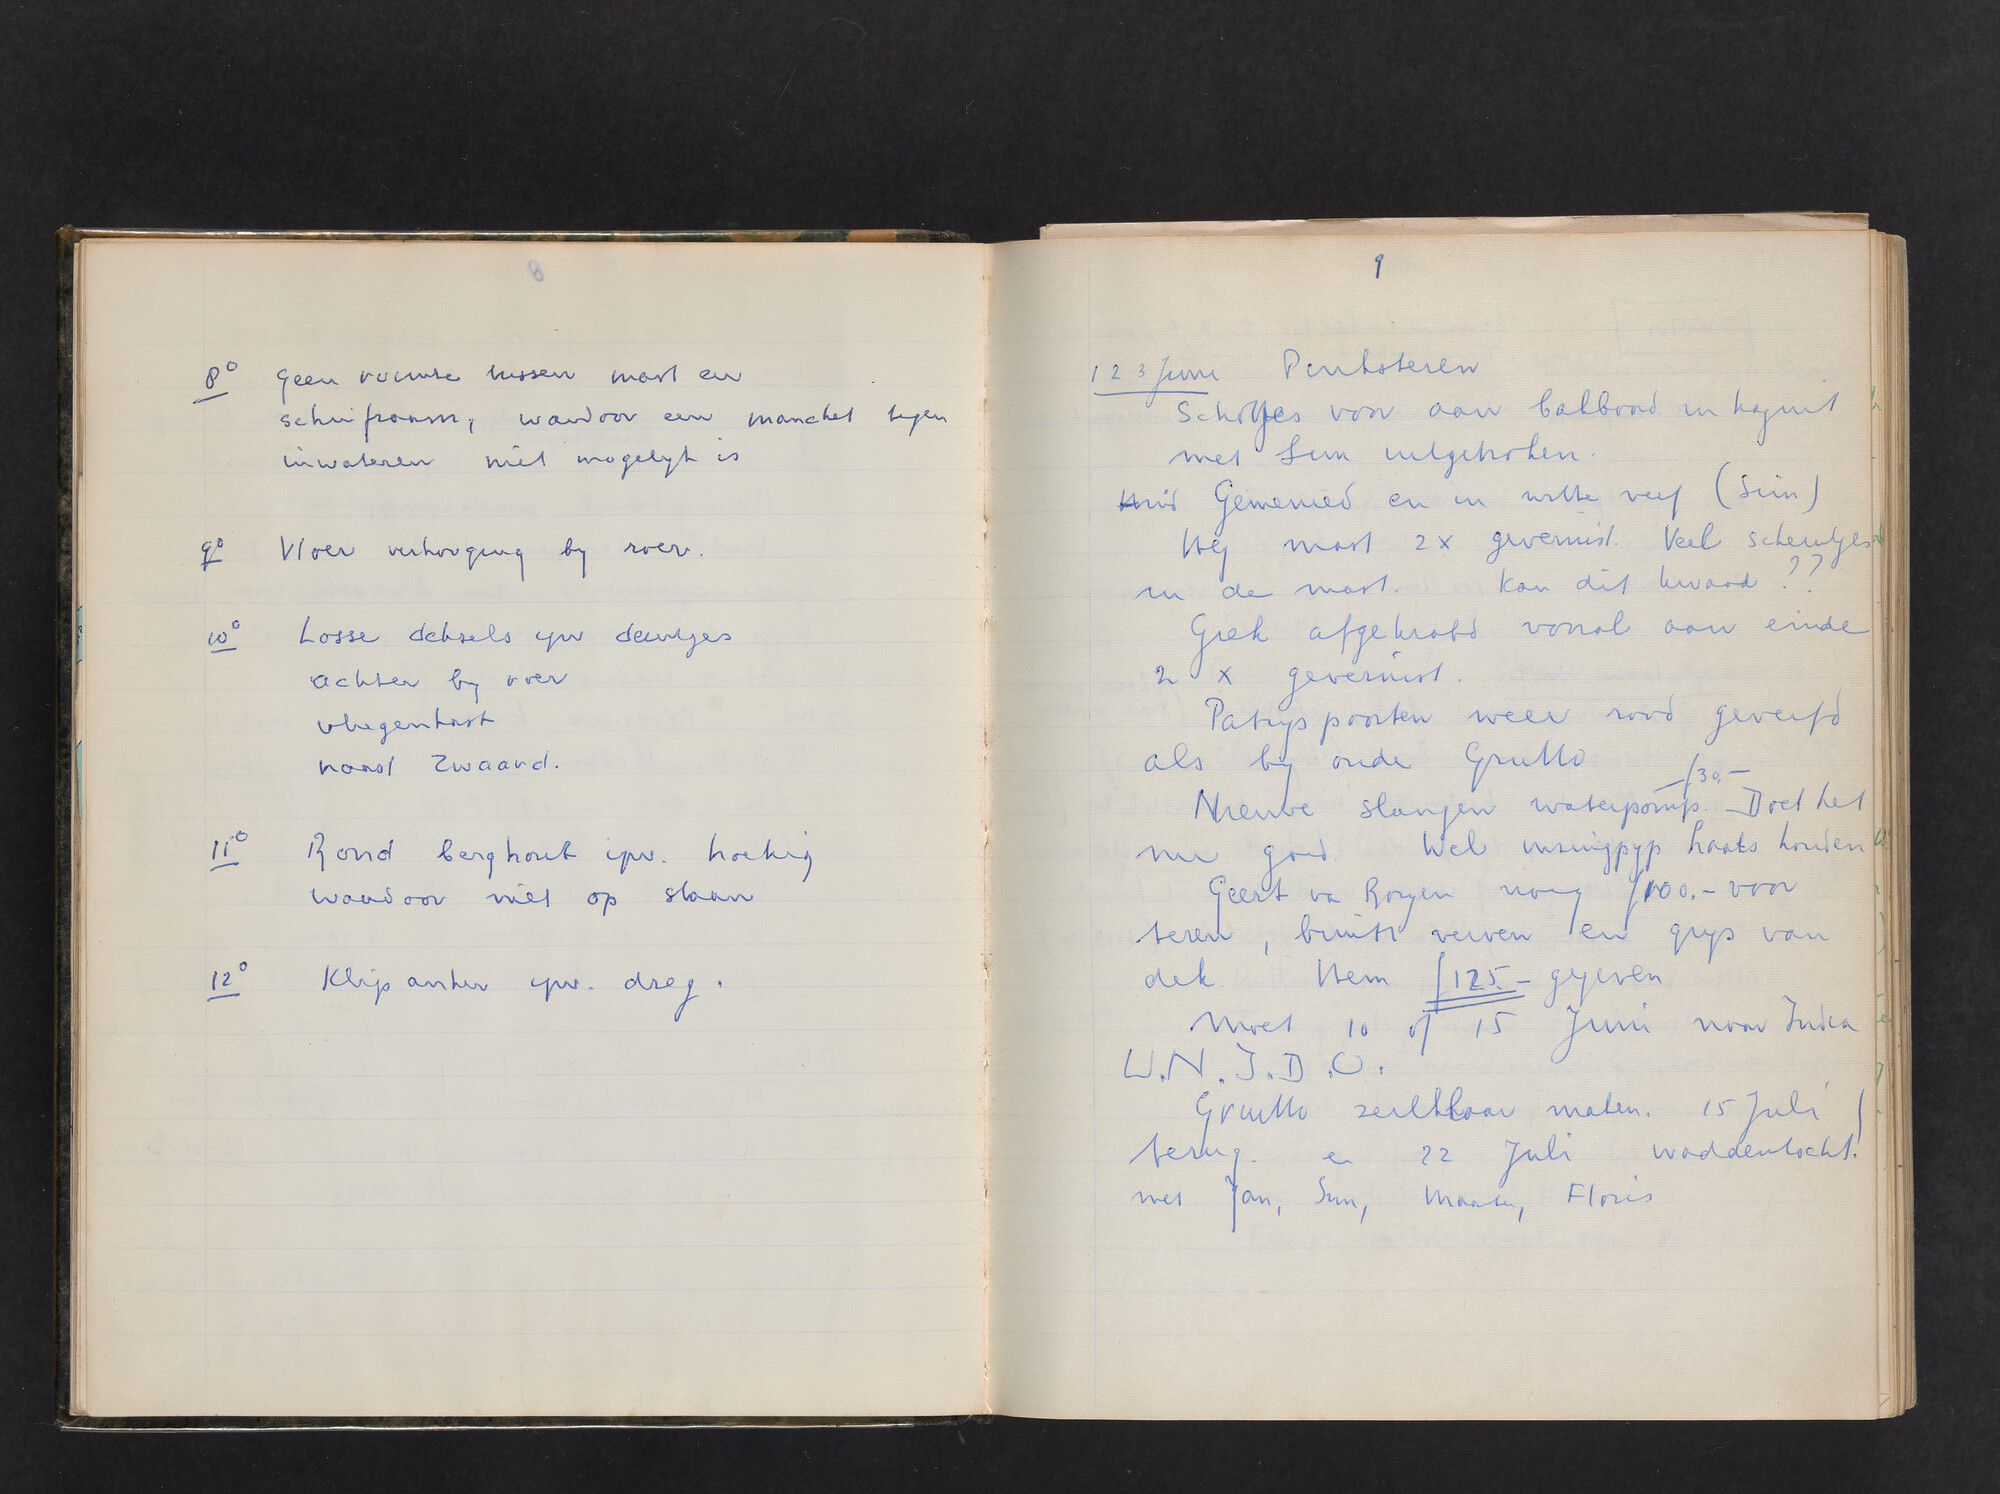 8
8° geen ruimte tussen mast en
schuifraam, waardoor een manchet tegen
inwateren niet mogelijk is
9° Vloer verhoging bij roer.
10° Losse deksels ipv deurtjes
achter bij roer
vliegenkast
naast zwaard.
11° Rond berghout ipv. hoekig
waardoor niet op staan
12° Klip anker ipv. dreg.
9
1 2 3 Juni Pinksteren
Schotjes voor aan bakboord in kajuit
met Siem uitgebroken.
Gemenied en in witte verf (Siem)
Hij mast 2 x gevernist. Veel scheurtjes
in de mast. Kan dit kwaad ??
Giek afgekrabd vooral aan einde
2 x gevernist.
Patrijspoorten weer rood geverfd
als bij oude Grutto
f 30,-
Nieuwe slangen waterpomp. Doet het
nu goed. Wel zuigpijp haaks houden
Geert va Royen nog f 100.- voor
teren, binits verven en grijs van
dek. Hem f 125.- gegeven
Moet 10 of 15 Juni naar India
U.N.I.D.O.
Grutto zeilklaar maken. 15 Juli
terug. en 22 Juli waddentocht.
met Jan, Siem, Maarten, Floris